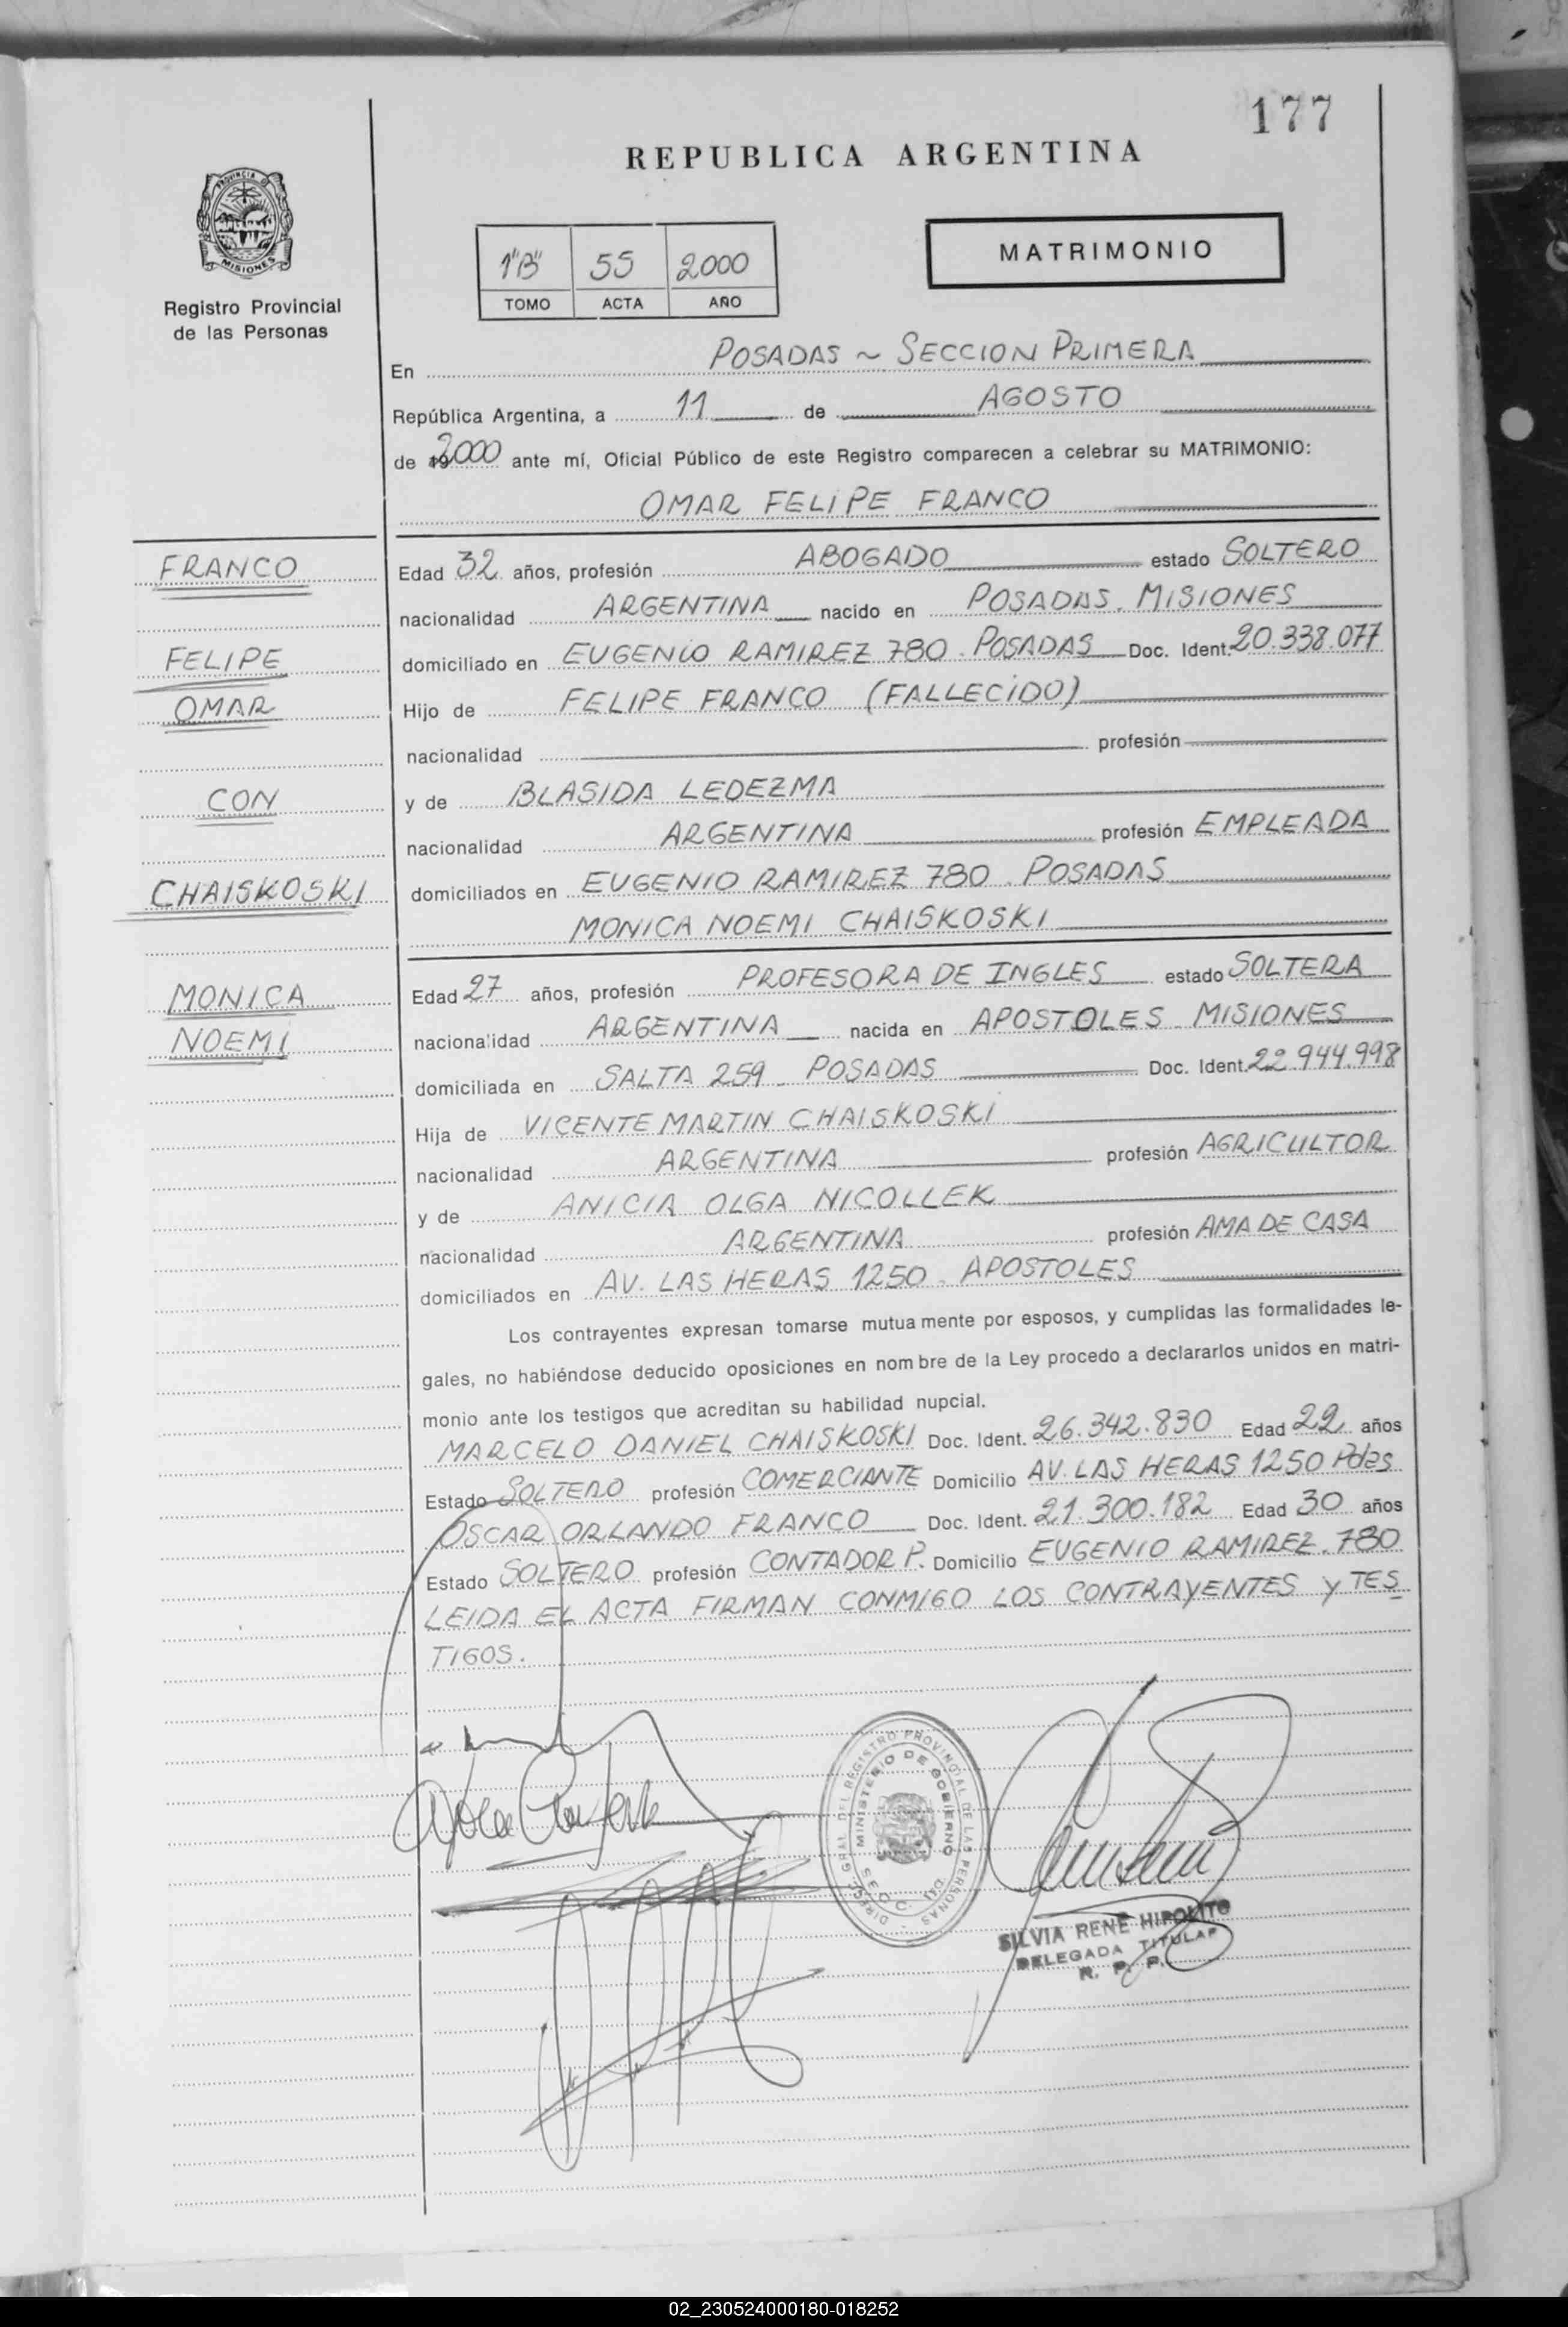 177
REPUBLICA ARGENTINA
PROVINCIA DE
MISIONES
Registro Provincial
de las Personas
1"B" 55 2000
TOMO ACTA AÑO
MATRIMONIO
En POSADAS ~ SECCION PRIMERA
República Argentina, a 11 de AGOSTO
de 2000 ante mí, Oficial Público de este Registro comparecen a celebrar su MATRIMONIO:
OMAR FELIPE FRANCO
FRANCO
FELIPE
OMAR
CON
CHAISKOSKI
MONICA
NOEMI
Edad 32 años, profesión ABOGADO estado SOLTERO
nacionalidad ARGENTINA nacido en POSADAS. MISIONES
domiciliado en EUGENIO RAMIREZ 780. POSADAS Doc. Ident. 20.338.077
Hijo de FELIPE FRANCO (FALLECIDO)
nacionalidad profesión
y de BLASIDA LEDEZMA
nacionalidad ARGENTINA profesión EMPLEADA
domiciliados en EUGENIO RAMIREZ 780. POSADAS
MONICA NOEMI CHAISKOSKI
Edad 27 años, profesión PROFESORA DE INGLES estado SOLTERA
nacionalidad ARGENTINA nacida en APOSTOLES MISIONES
domiciliada en SALTA 259. POSADAS Doc. Ident. 22.944.998
Hija de VICENTE MARTIN CHAISKOSKI
nacionalidad ARGENTINA profesión AGRICULTOR
y de ANICIA OLGA NICOLLEK
nacionalidad ARGENTINA profesión AMA DE CASA
domiciliados en AV. LAS HERAS 1250. APOSTOLES
Los contrayentes expresan tomarse mutuamente por esposos, y cumplidas las formalidades le-
gales, no habiéndose deducido oposiciones en nombre de la Ley procedo a declararlos unidos en matri-
monio ante los testigos que acreditan su habilidad nupcial.
MARCELO DANIEL CHAISKOSKI Doc. Ident. 26.342.830 Edad 22 años
Estado SOLTERO profesión COMERCIANTE Domicilio AV. LAS HERAS 1250 Pdas
OSCAR ORLANDO FRANCO Doc. Ident. 21.300.182 Edad 30 años
Estado SOLTERO profesión CONTADOR P. Domicilio EUGENIO RAMIREZ. 780
LEIDA EL ACTA FIRMAN CONMIGO LOS CONTRAYENTES y TES
TIGOS.
DIREC. GRAL. DEL REGISTRO PROVINCIAL DE LAS PERSONAS
MINISTERIO DE GOBIERNO
SECC.
SILVIA RENE HIPOLITO
DELEGADA TITULAR
R. P. P.
02_230524000180-018252